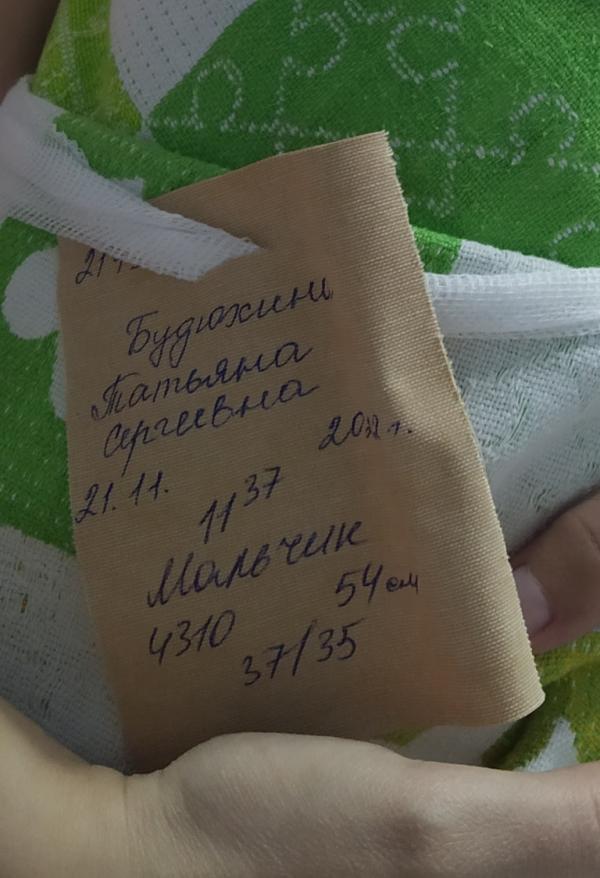 Будюхина
Татьяна
Сергеевна
21.11. г.
11 37
Мальчик
4310 54 см
37/35